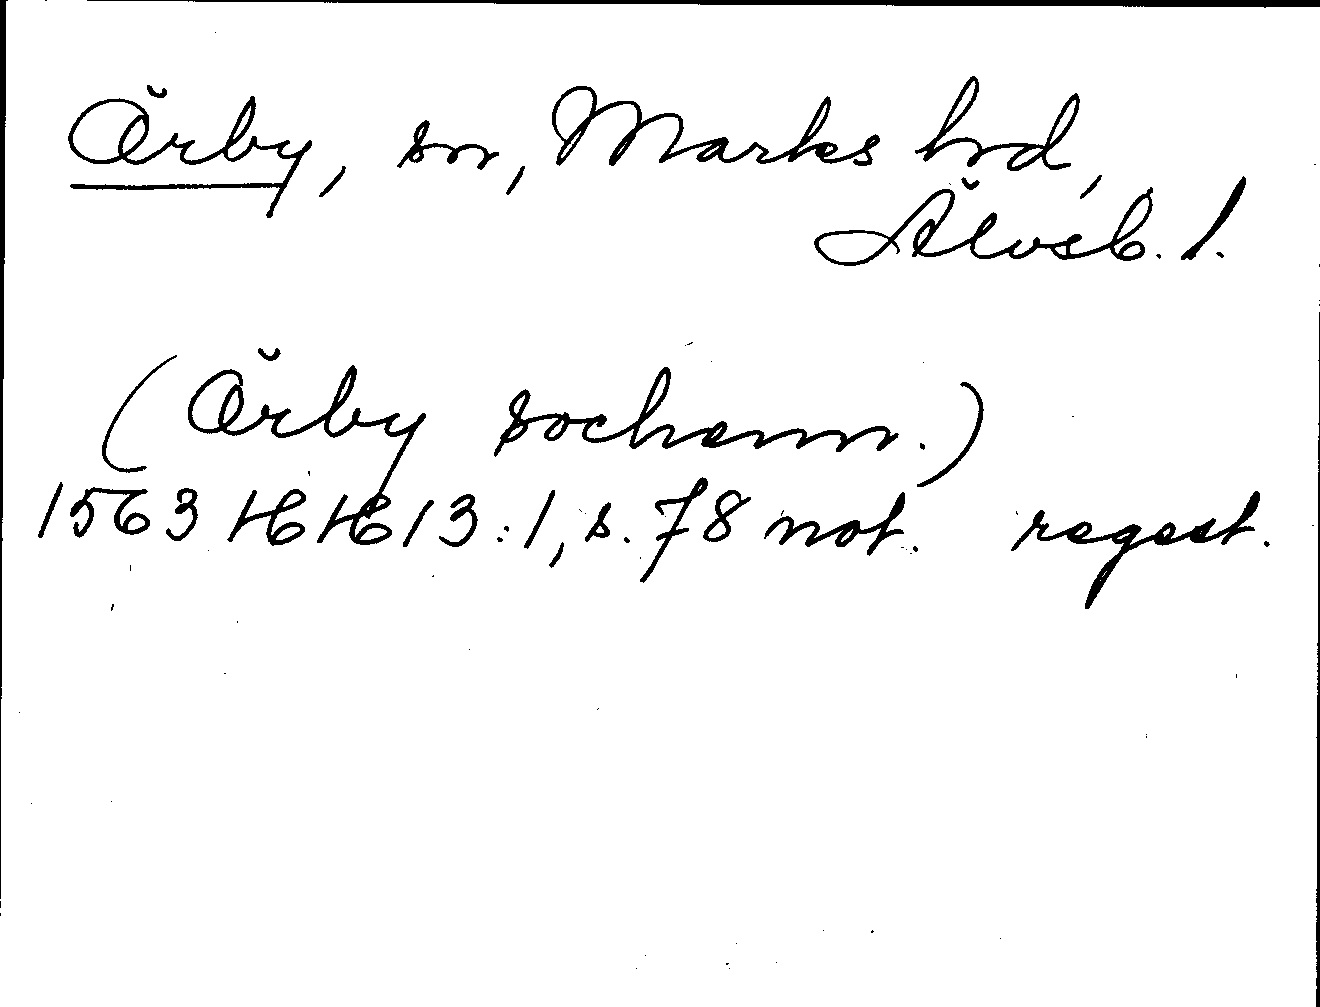 Örby, sn, Marks hrd,
Älvsb. l.
(Örby sochenn.)
1563 HH 13:1, s. 78 not. regest.